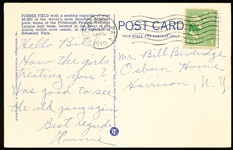 FORBES FIELD with a seating capacity of over
40,000 is one of the world's most beautiful baseball
parks, home of the Pittsburgh Pirates National
League ball team, located in the heart of the
million dollar civic center, at the entrance of
Schenley Park.
POST CARD
THIS SPACE FOR ADDRESS ONLY
Hello Bill
How the girls
treating you?
Was good to see
the old gang again
Best regards
Honnie
Mr. Bill Beveridge
Osborn Home
Harrison, N.Y.